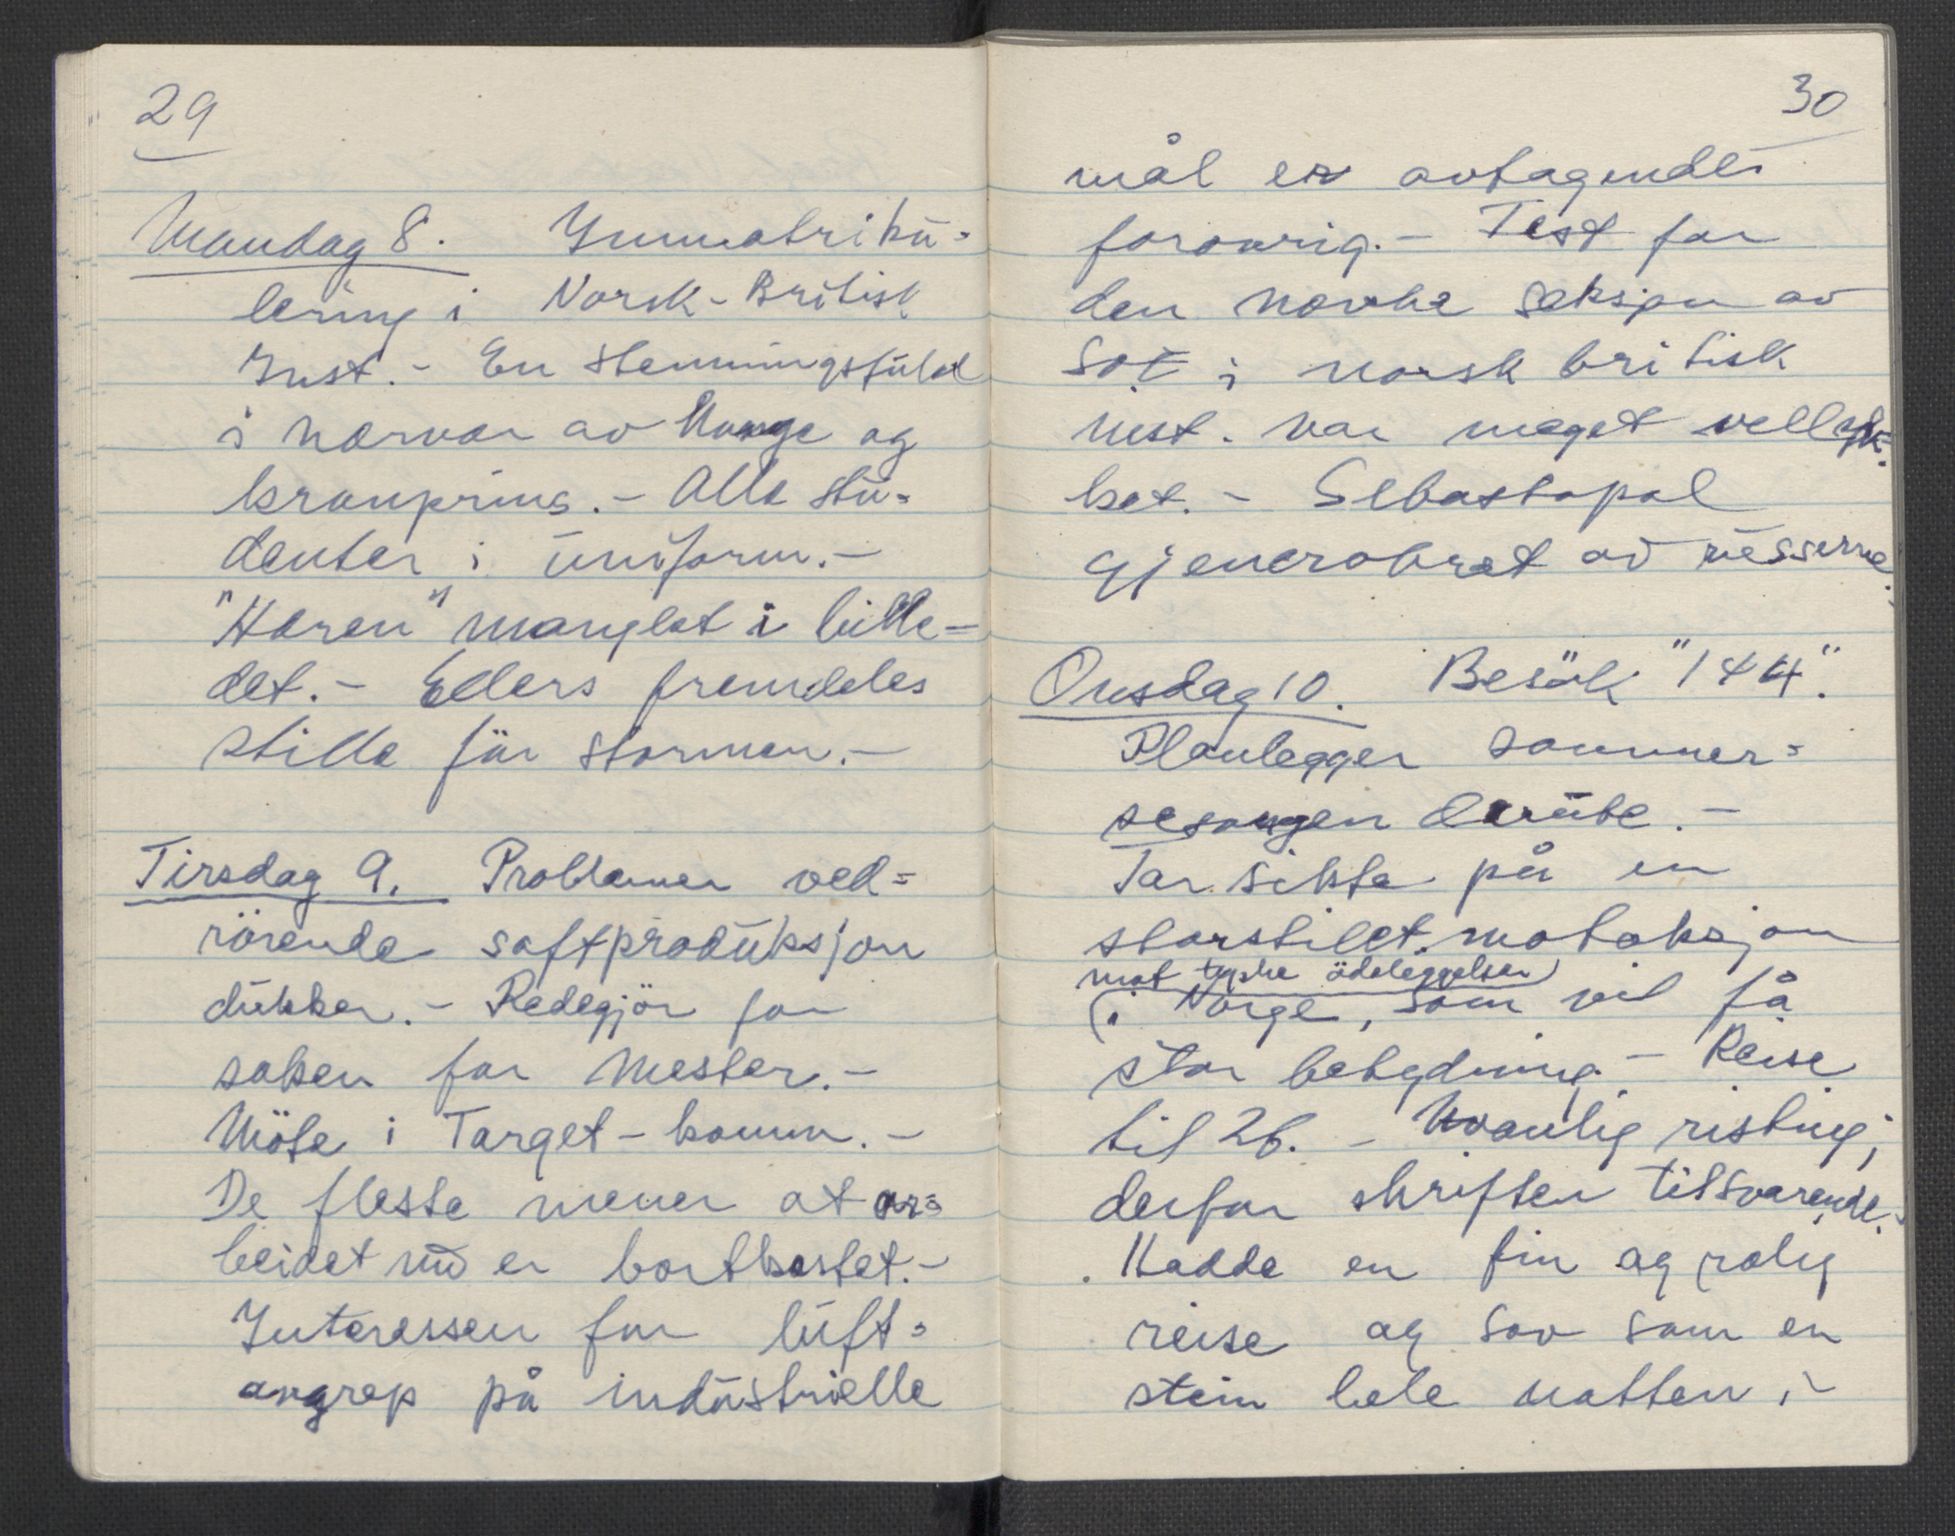 29
Mandag 8. Immatriku-
lering i Norsk-Britisk
Inst. - En stemningsfuld
i nærvær av Konge og
kronprins. - Alle stu-
denter i uniform. -
"Hæren" manglet i bille-
det. - Ellers fremdeles
stille før stormen. -
Tirsdag 9. Problemer ved-
rörende saftproduksjon
dukker. - Redegjör for
saken for Mester. -
Möte i Target-komm. -
De fleste mener at ar-
beidet nu er bortkastet. -
Interessen for luft-
angrep på industrielle
30
mål er avtagende
forøvrig. - Fest for
den norske seksjon av
SOE i norsk britisk
inst. var meget vellyk-
ket. - Sebastopol
gjenerobret av russerne.
Onsdag 10. Besök "144".
Planlegger sommer-
sesongen deroppe. -
Tar sikte på en
storstilet motaksjon
mot tyske ödeleggelser
i Norge, som vil få
stor betydning - Reise
til 26. - Uvanlig risting;
derfor skriften tilsvarende.
Hadde en fin og rolig
reise og sov som en
stein hele natten i